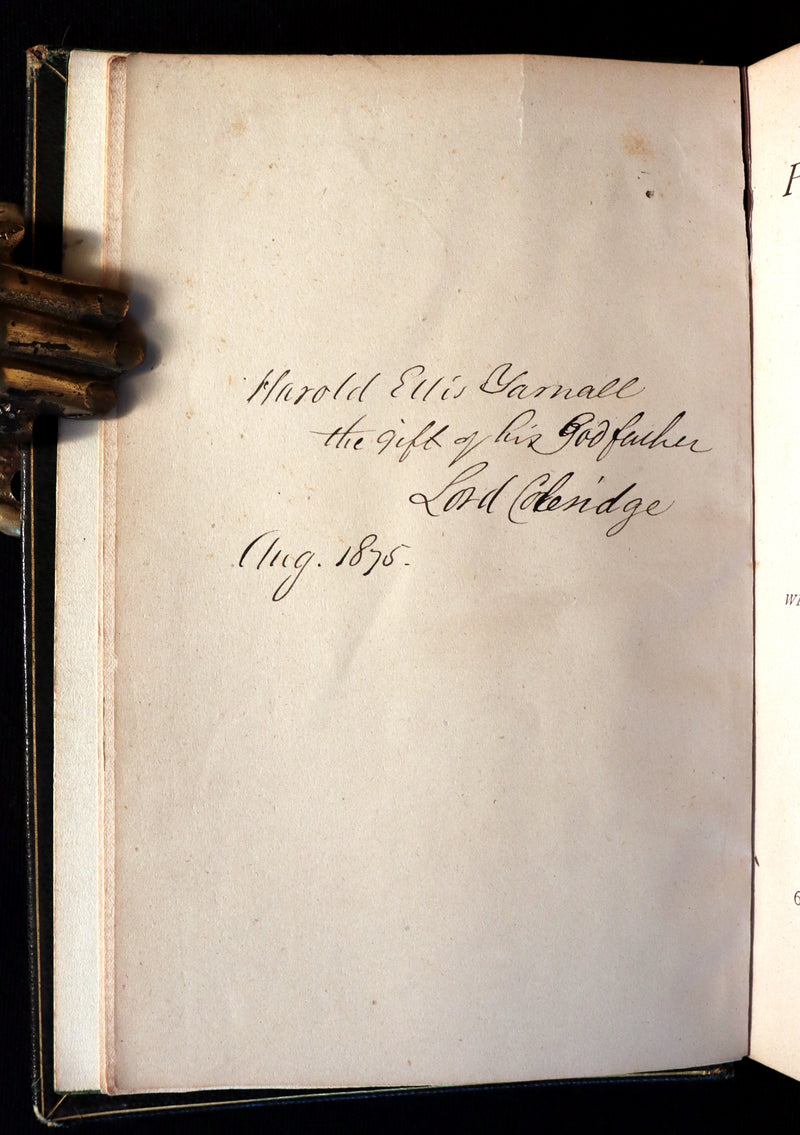 Harold Ellis Yarnall
the gift of his Godfather
Lord Coleridge
Aug. 1875.